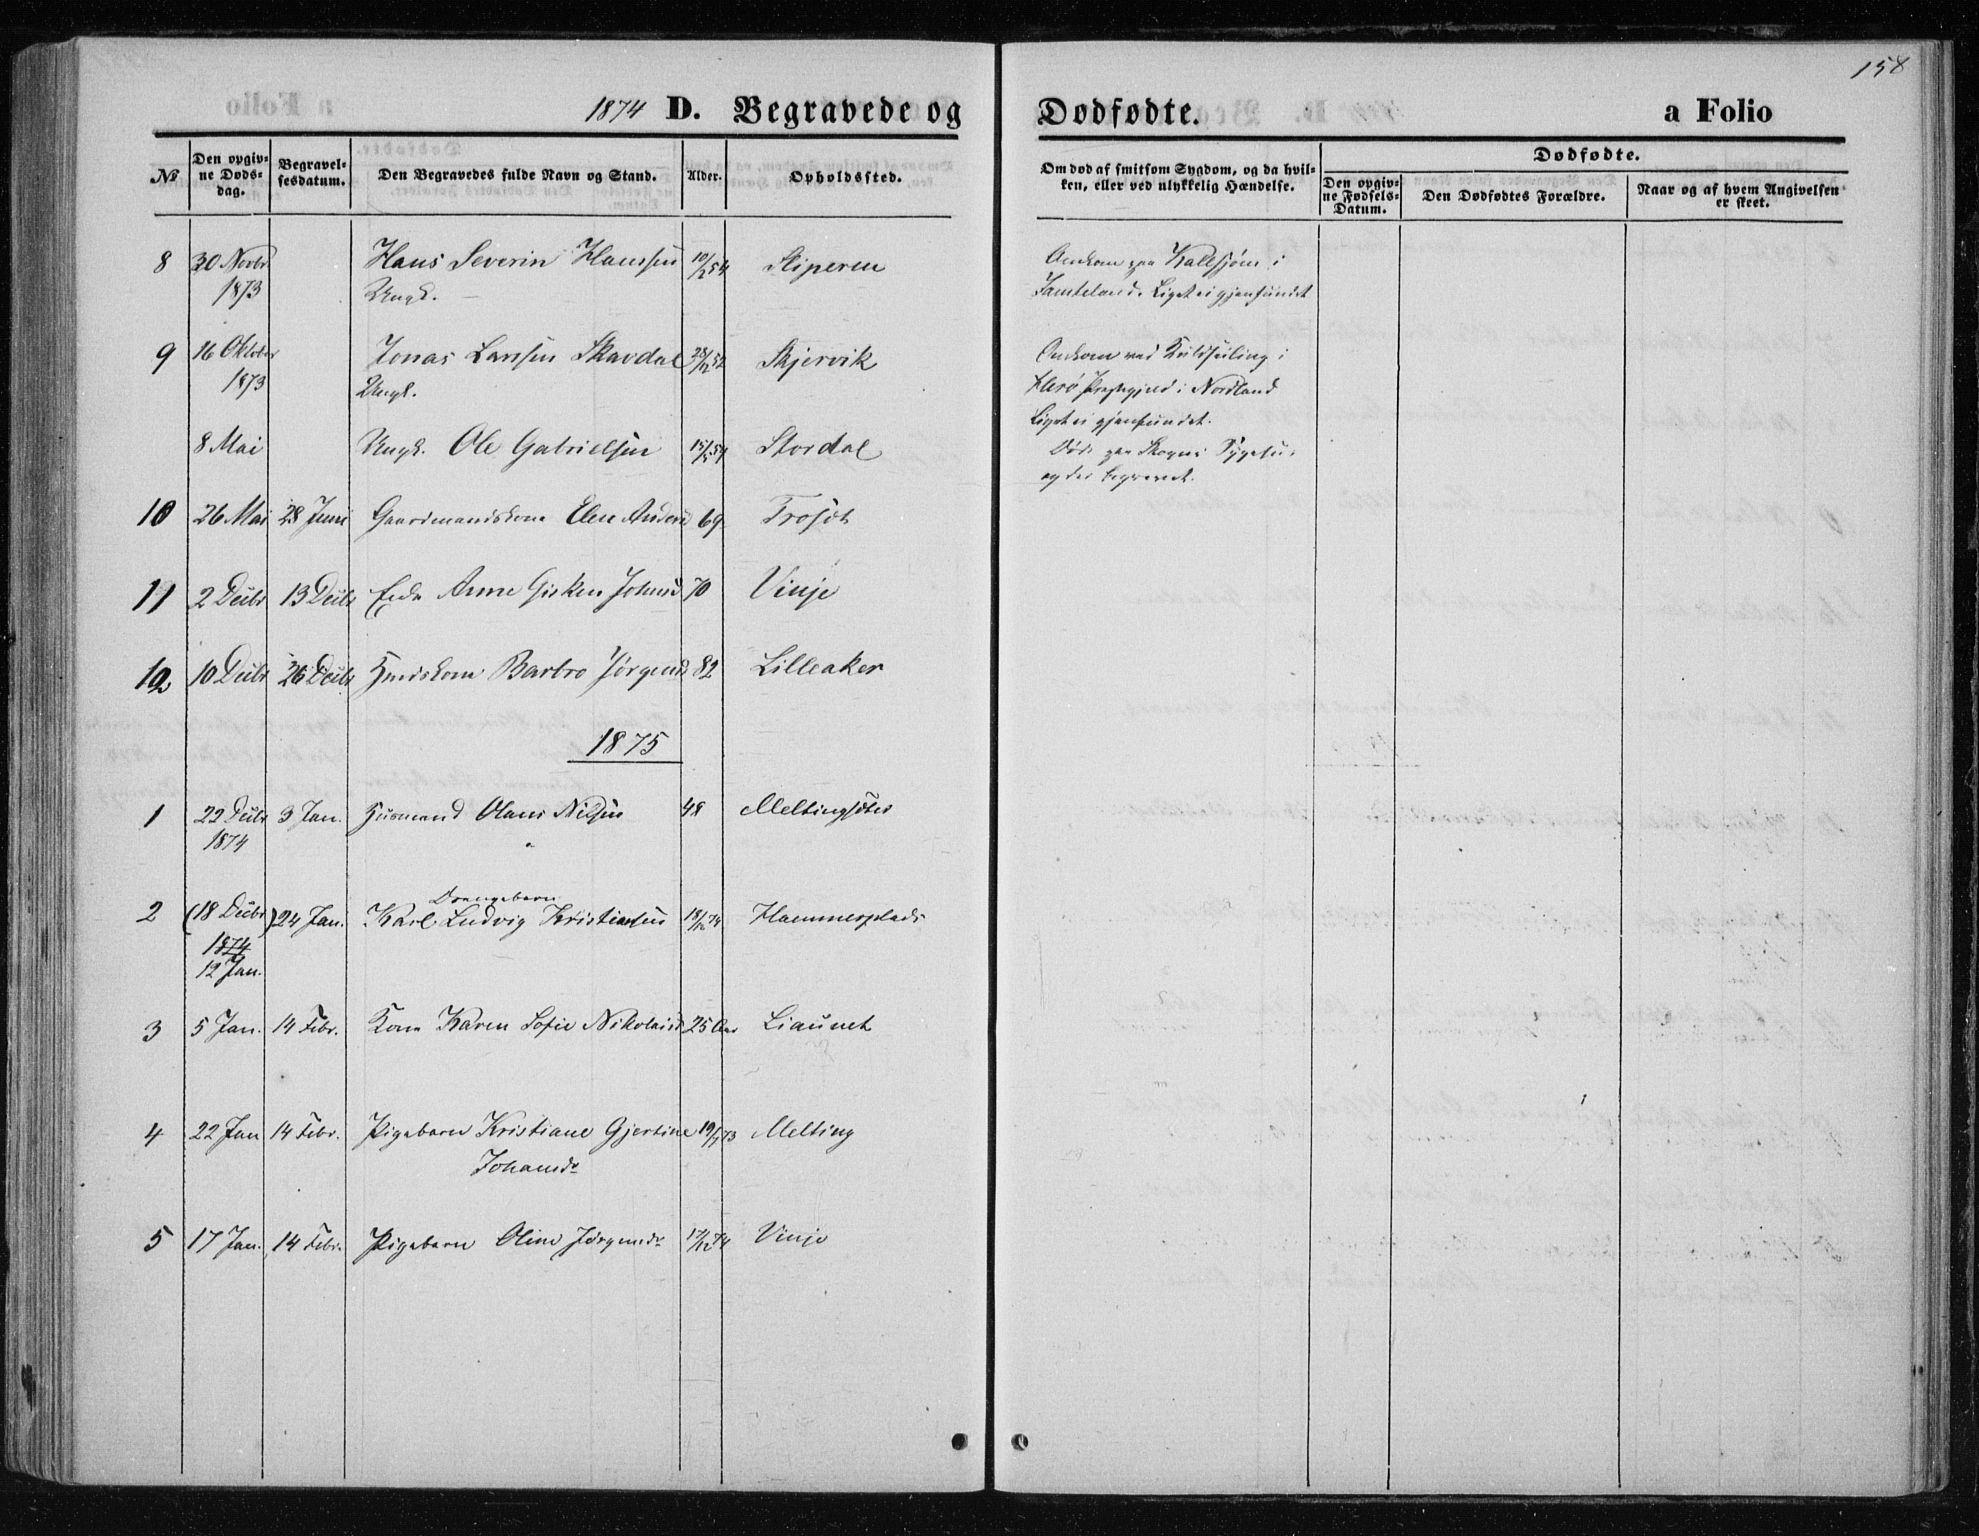 158
1874 D. Begravede og Dødfødte. a Folio
№ Den opgivne Døds-dag. Begravelsesdatum. Den Begravedes fulde Navn og Stand. Alder. Opholdssted. Om død af smitsom Sygdom, og da hvilken, eller ved ulykkelig Hændelse. Dødfødte.
Den opgivne Fødsels-Datum. Den Dødfødtes Forældre. Naar og af hvem Angivelsen er skeet.
8 30 Novbr Hans Severin Hanssen 54 Omkom paa Kallsjøen i
1873 Ungk. Jämteland. Liget ei gjenfundet
9 16 Oktober Jonas Larssen Skavdal 52 Skjervik Omkom ved Kuldseiling i
1873 Ungk. Herø Præstegjeld i Nordland
Liget ei gjenfundet.
8 Mai Ungk. Ole Gabrielsen 54 Stordal Død paa Skogns
og der begravet.
10 26 Mai 28 Juni Gaardmandskone Elen 69
11 2 Decbr 13 Decbr Anne Johnsd 70 Vinje
12 10 Decbr 26 Decbr Barbro Jørgensd 82 Lilleaker
1875
1 22 Decbr 3 Jan. Husmand Olaus Nilsen 48
1874
2 (18 Decbr) 24 Jan. Drengebarn Karl Ludvig Kristiansen 18/12 74 Hammerplads
1874
12 Jan.
3 5 Jan. 14 Febr. Kone Karen Sofie Nikolaisd 25 Aar Liaunet
4 22 Jan 14 Febr. Pigebarn Kristiane Gjertine 73 Melting
Johansdr
5 17 Jan. 14 Febr. Pigebarn Oline Jørgensdr 17/12 74 Vinje